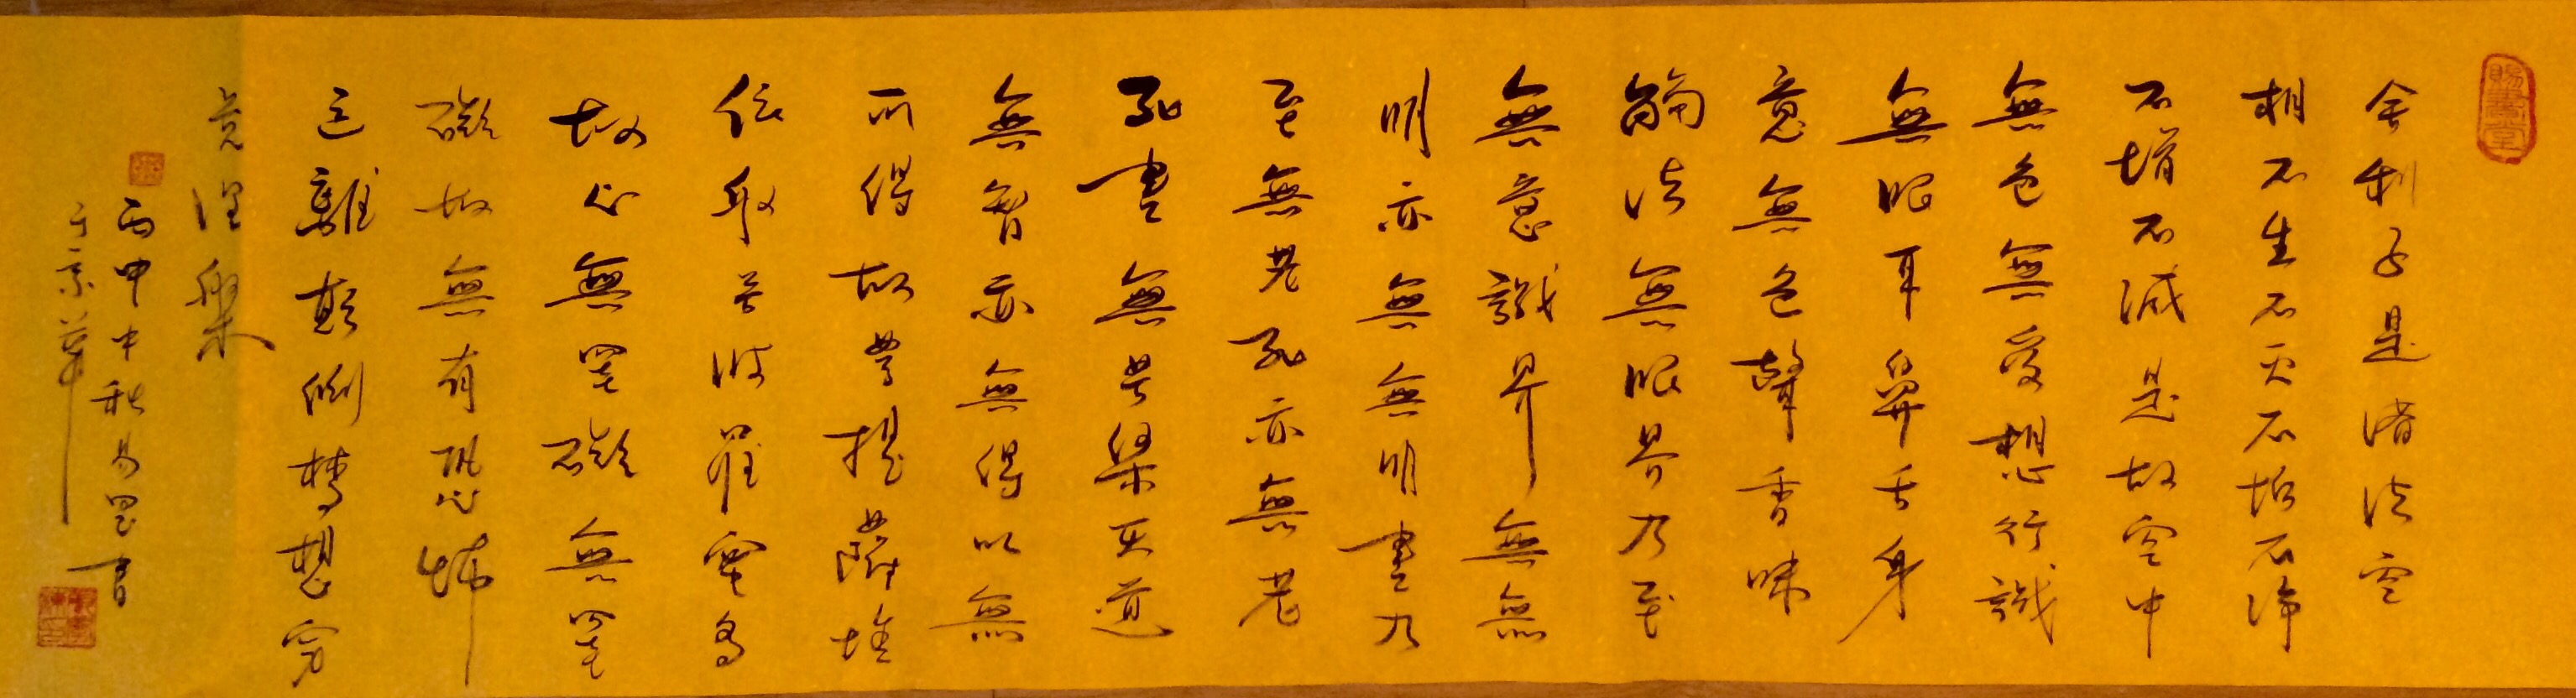 賜書堂
舍利子是諸法空
相不生不灭不垢不淨
不增不減是故空中
無色無受想行識
無眼耳鼻舌身
意無色聲香味
觸法無眼界乃至
無意識界無無
明亦無無明盡乃
至無老死亦無老
死盡無苦集灭道
無智亦無得以無
所得故菩提薩埵
依般若波羅蜜多
故心無罣礙無罣
礙故無有恐怖
遠離顛倒夢想究
竟涅槃
丙申中秋易書
于京華